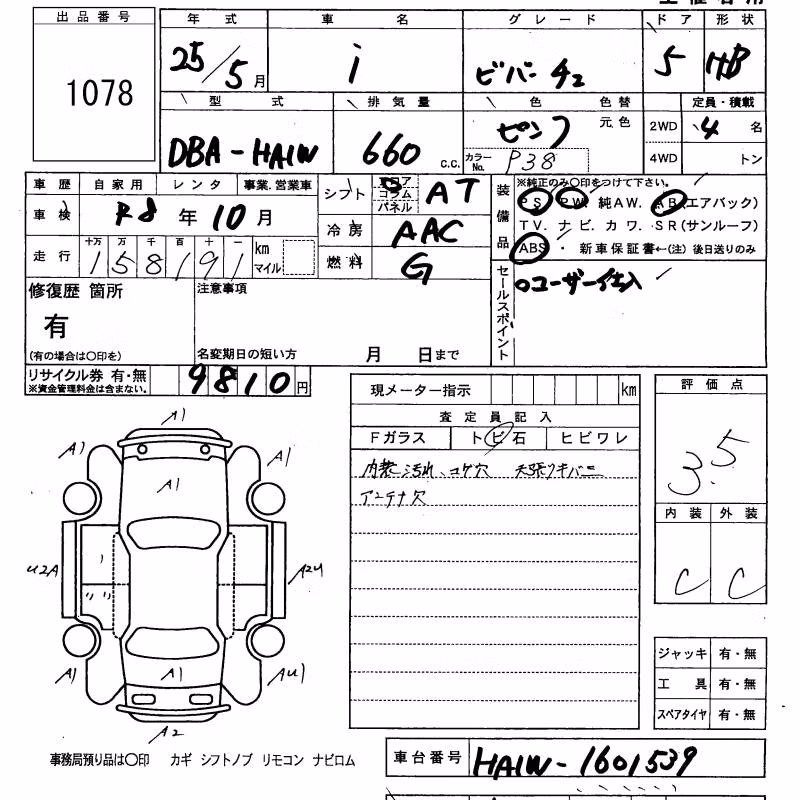 出品番号
1078
年式 車名 グレード ドア 形状
25/5月 i ビバーチェ 5 HB
型式 排気量 色 色替 定員・積載
DBA-HA1W 660 c.c. ピンク 元色
カラーNo. P38
2WD 4 名
4WD トン
車歴 自家用 レンタ 事業、営業車
シフト フロア コラム パネル AT
車検 R8 年 10 月
冷房 AAC
走行 十万 万 千 百 十 一
158191 km マイル
燃料 G
装備品
※純正のみ○印をつけて下さい。
PS. PW. 純AW. AB(エアバック)
TV. ナビ. カワ. SR(サンルーフ)
ABS ・ 新車保証書←(注) 後日送りのみ
セールスポイント
○ユーザー仕入
修復歴 箇所
有
(有の場合は○印を)
注意事項
名変期日の短い方 月 日まで
リサイクル券 有・無
※資金管理料金は含まない。
9810円
現メーター指示 km
査定員記入
Fガラス トビ石 ヒビワレ
内装汚れ、コゲ穴 天張リキバミ
アンテナ穴
評価点
3.5
内装 外装
C C
A1
A1 A1
A1
U2A A2U
A1 A1 AU1
A2
ジャッキ 有・無
工具 有・無
スペアタイヤ 有・無
事務局預り品は○印 カギ シフトノブ リモコン ナビロム
車台番号 HA1W-1601539